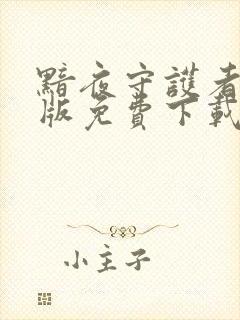 黯夜守護者
版免費下載
小主子